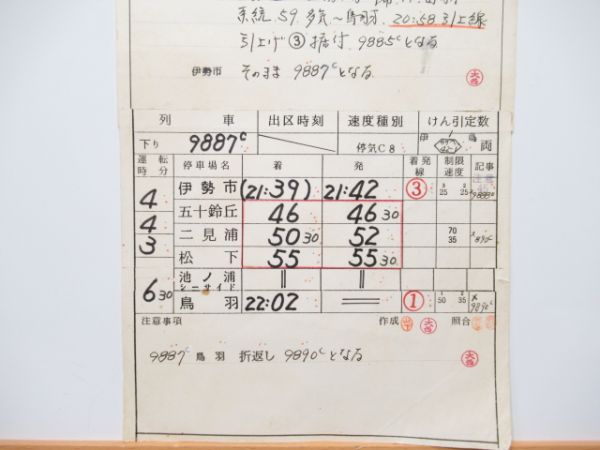 系統 59. 多気〜鳥羽. 20:58 引上線
引上げ ③ 据付. 9885ᶜとなる
伊勢市 そのまま 9887ᶜとなる
列車 出区時刻 速度種別 けん引定数
下り 9887ᶜ 停気C8 両
運転時分 停車場名 着 発 着発線 制限速度 記事
4 伊勢市 (21:39) 21:42 ③ 25 25
4 五十鈴丘 46 46 30
3 二見浦 50 30 52 70 35
松下 55 55 30
池ノ浦シーサイド ‖ ‖
6 30 鳥羽 22:02 ═ ① 50 35
注意事項 作成 照合
9887ᶜ 鳥羽 折返し 9890ᶜとなる